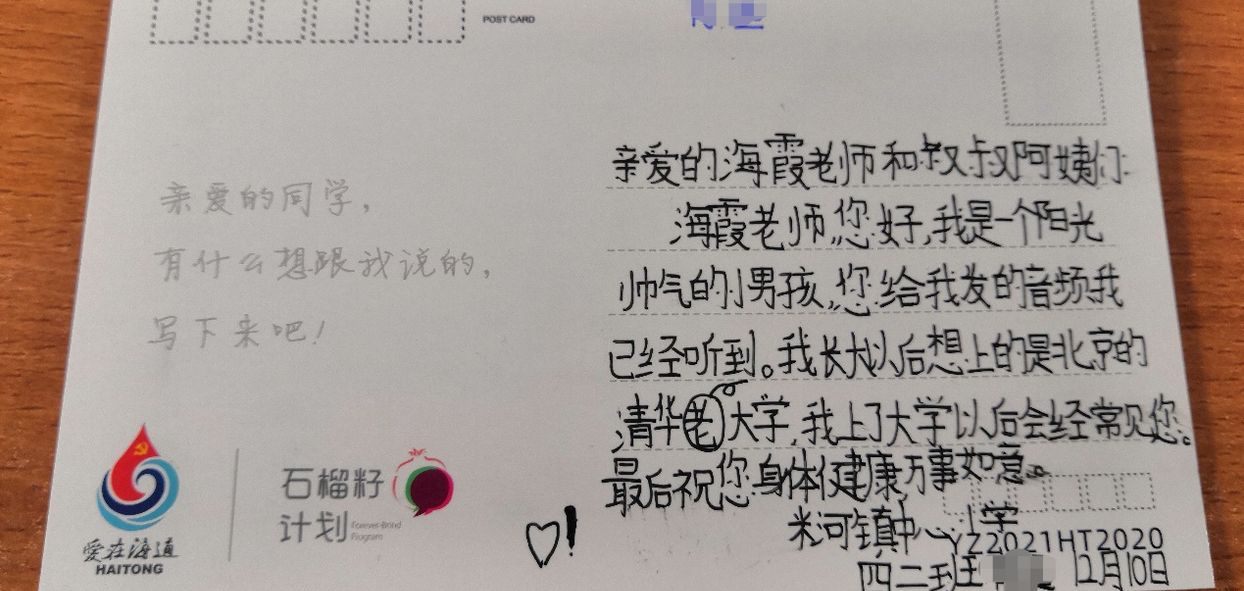 POST CARD
亲爱的同学,
有什么想跟我说的,
写下来吧!
爱在海通
HAITONG
石榴籽
计划
Forever-Bond
Program
亲爱的海霞老师和叔叔阿姨们:
海霞老师,您好,我是一个阳光
帅气的小男孩,您给我发的音频我
已经听到。我长大以后想上的是北京的
清华老大学,我上了大学以后会经常见您。
最后祝您身体健康,万事如意。
米河镇中心小学
YZ2021HT2020
四二班王
12月10日